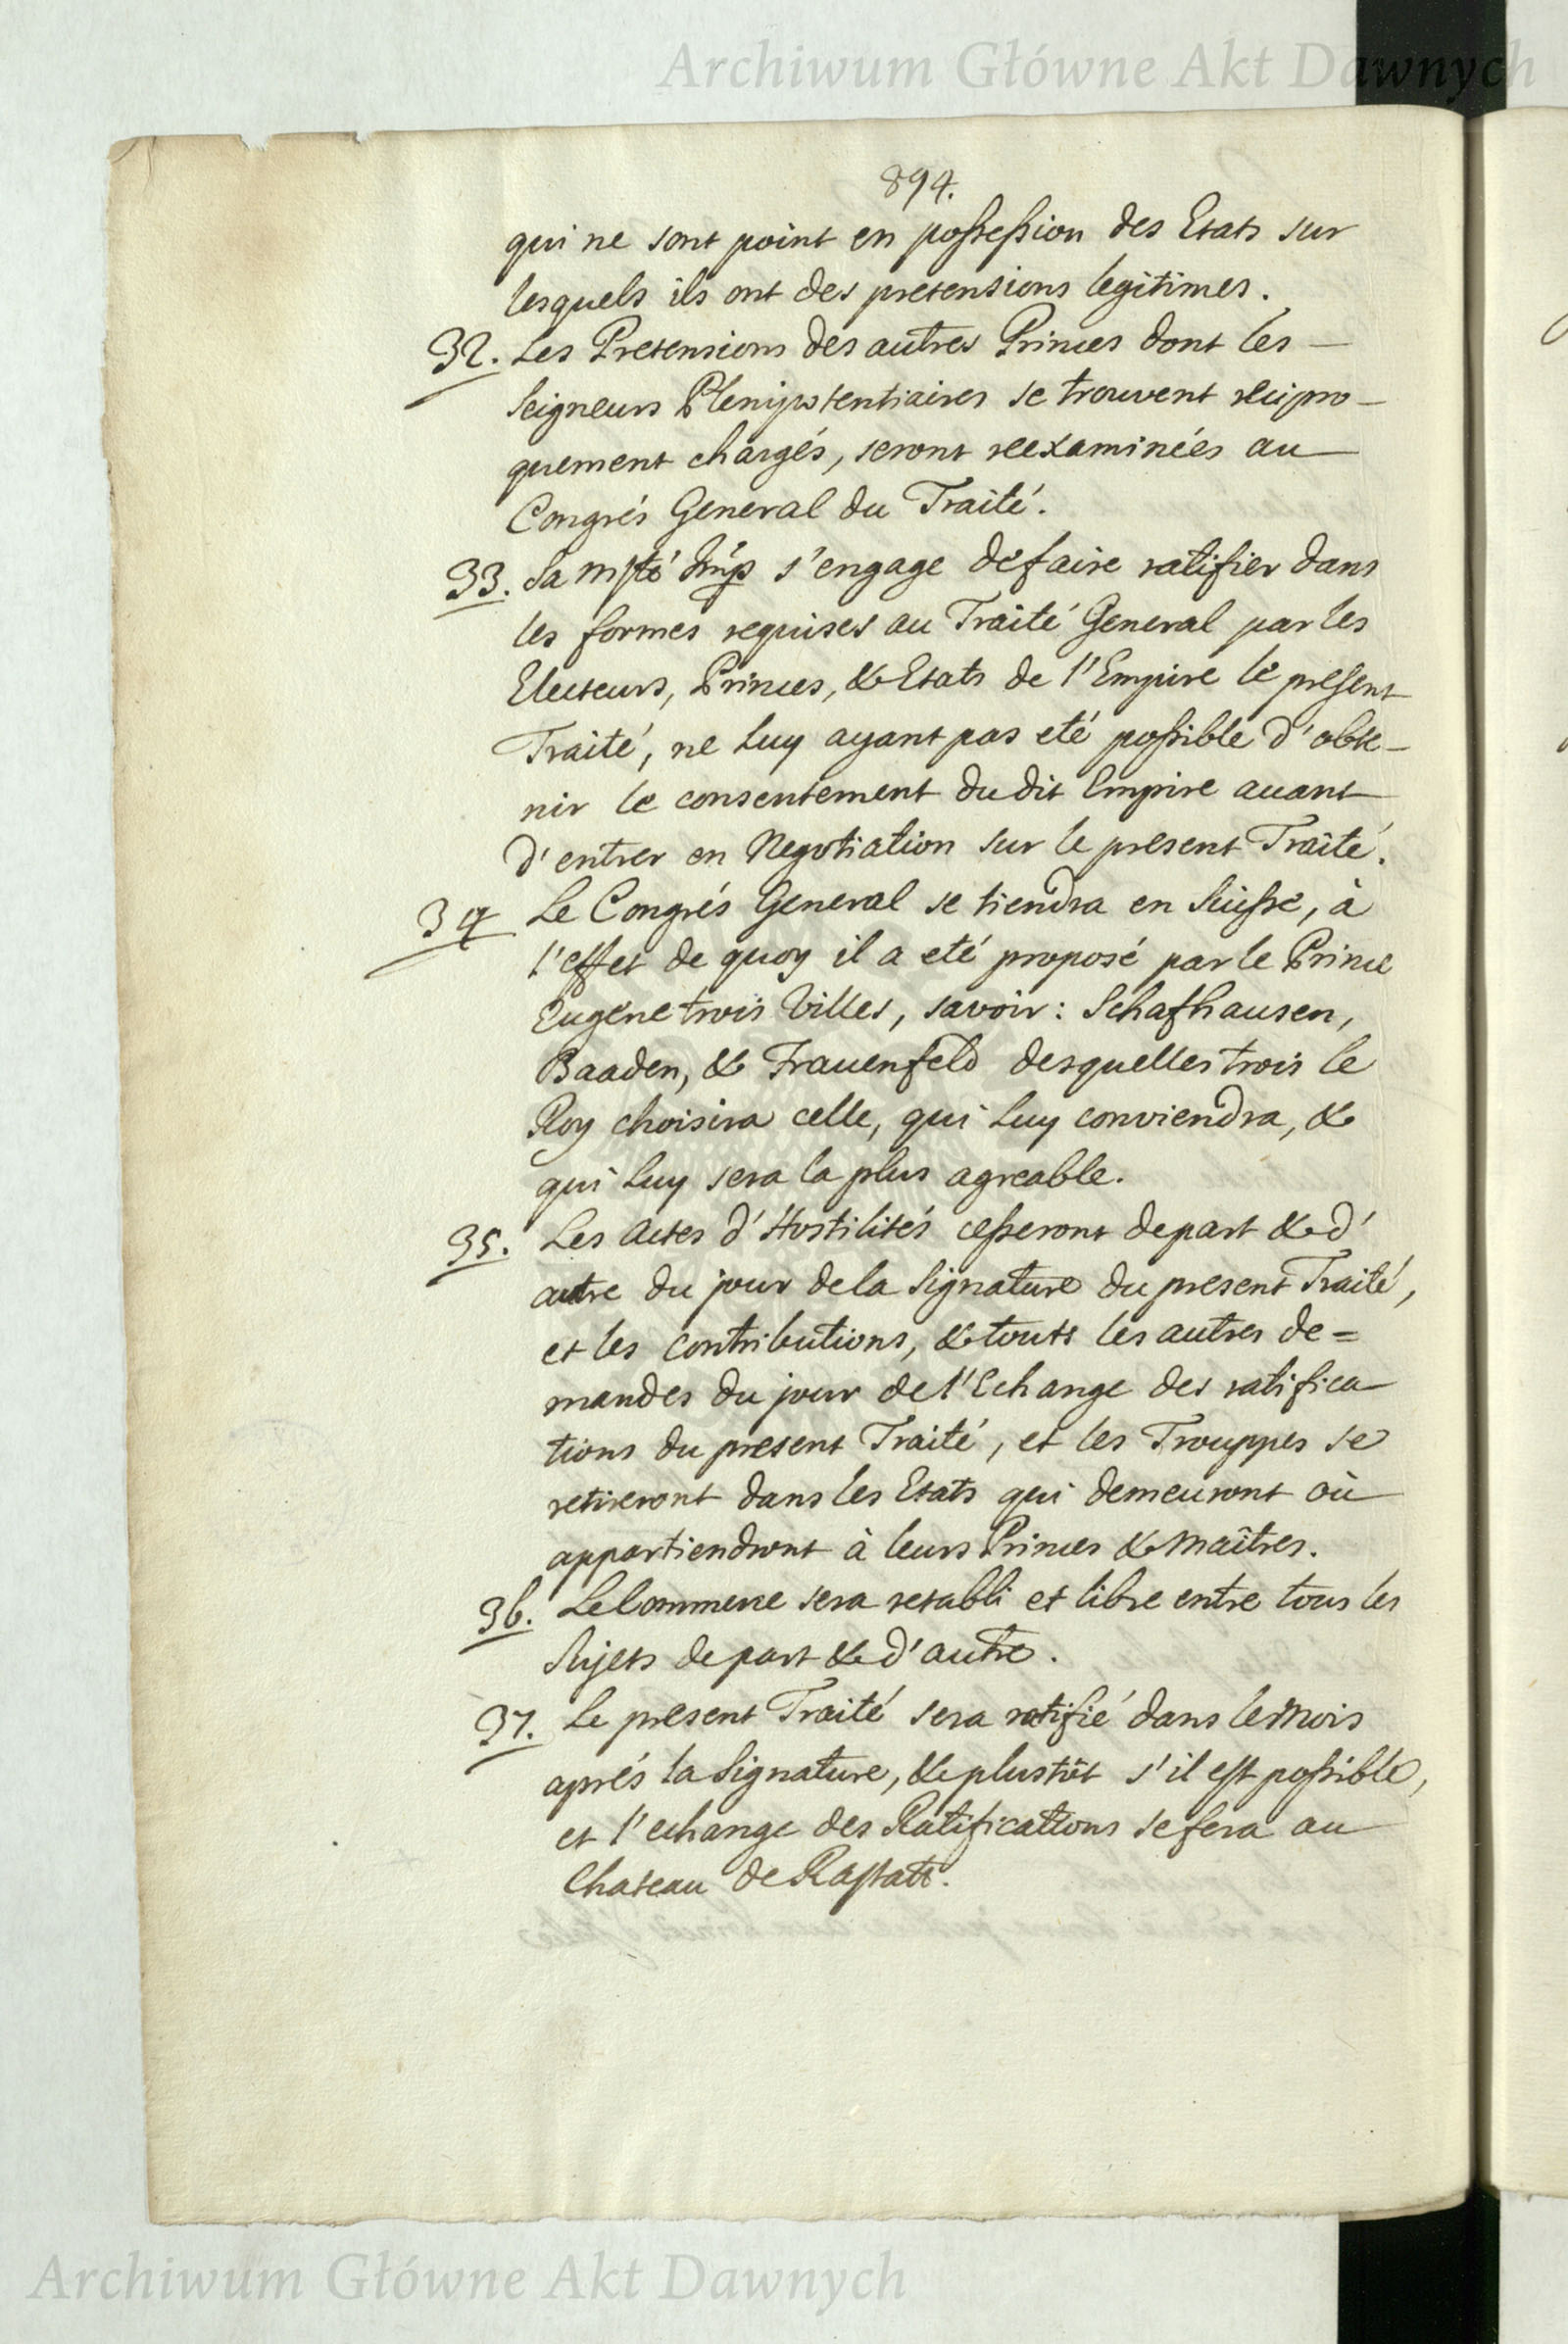 Archiwum Główne Akt Dawnych
894.
qui ne sont point en possession des Etats sur
lesquels ils ont des pretensions legitimes.
32. Les Pretensions des autres Princes dont les —
Seigneurs Plenipotentiaires se trouvent recipro-
quement chargés, seront reexaminées au
Congrés General du Traité.
33. Sa Mjté Imp s'engage de faire ratifier dans
les formes requises au Traité General par les
Electeurs, Princes, & Etats de l'Empire le present
Traité, ne Luy ayant pas eté possible d'obte-
nir le consentement du dit Empire avant
d'entrer en Negotiation sur le present Traité.
34 Le Congrés General se tiendra en Suisse, à
l'effet de quoy il a eté proposé par le Prince
Eugene trois Villes, savoir: Schafhausen,
Baaden, & Frauenfeld desquelles trois le
Roy choisira celle, qui Luy conviendra, &
qui Luy sera la plus agreable.
35. Les Actes d'Hostilités cesseront de part & d'
autre du jour de la Signature du present Traité,
et les Contributions, & touts les autres de=
mandes du jour de l'Echange des ratifica-
tions du present Traité, et les Trouppes se
retireront dans les Etats qui demeuront où
appartiendront à leurs Princes & Maîtres.
36. Le Commerce sera retabli et libre entre tous les
Sujets de part & d'autre.
37. Le present Traité sera ratifié dans le mois
aprés la Signature, & plustôt s'il est possible,
et l'echange des Ratifications se fera au
Chateau de Rastatt.
Archiwum Główne Akt Dawnych